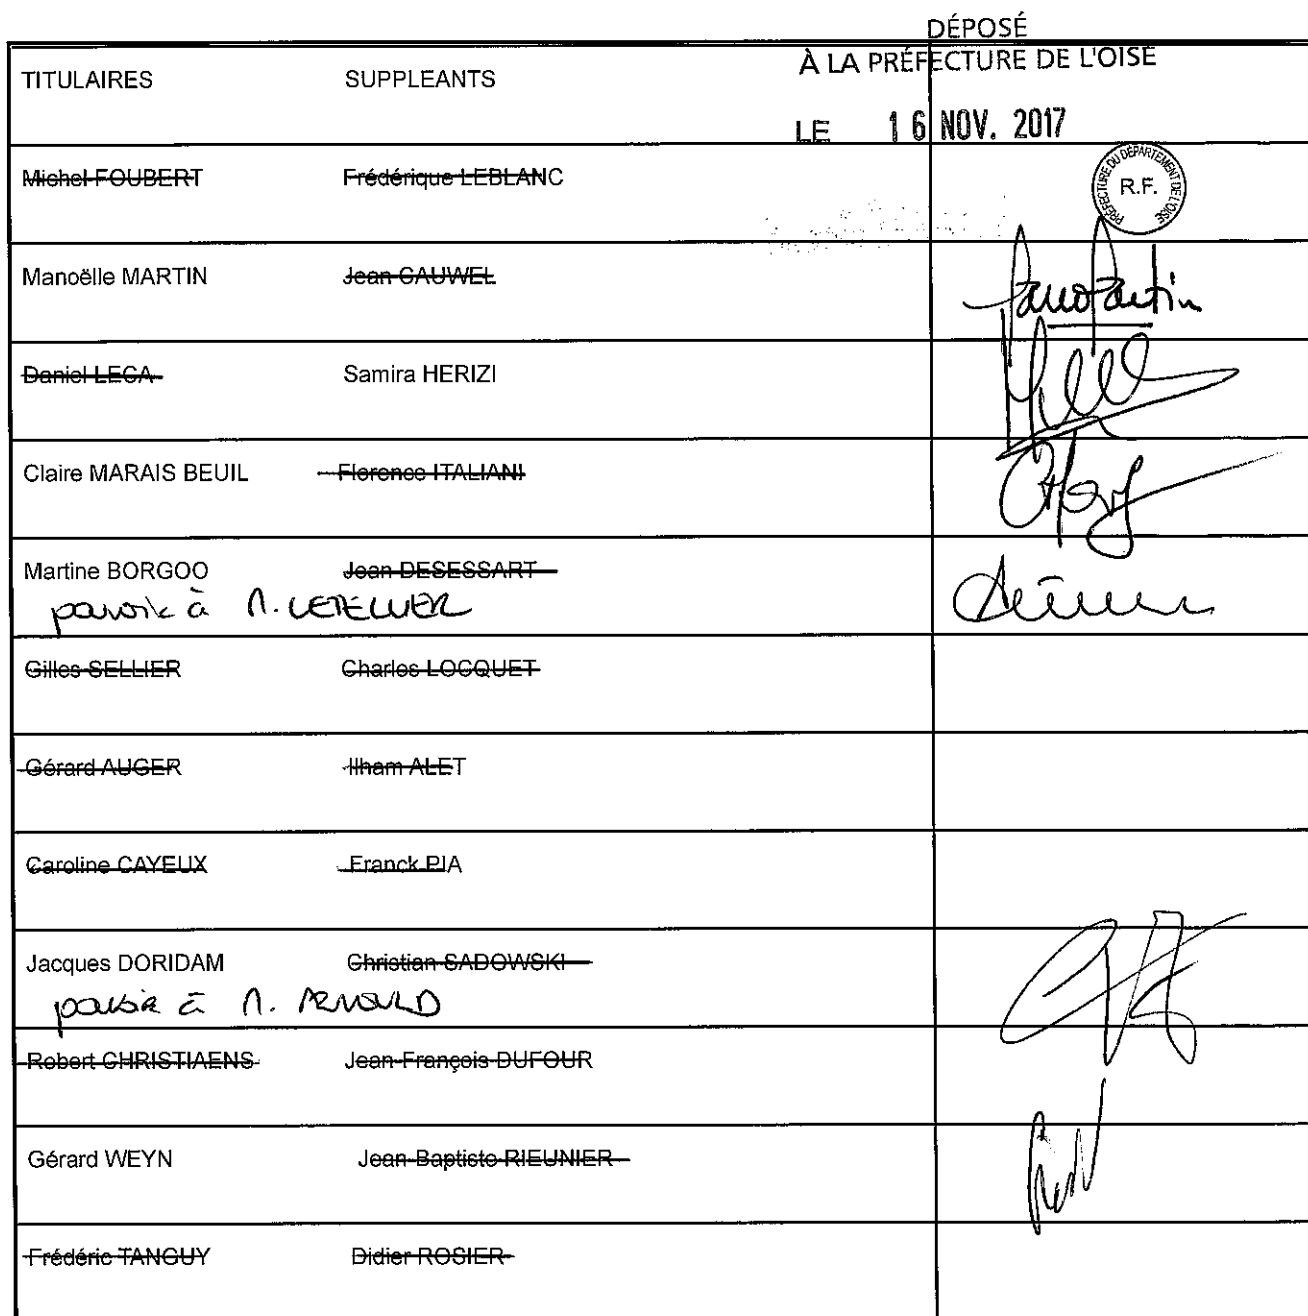 DÉPOSÉ
À LA PRÉFECTURE DE L'OISE
LE 16 NOV. 2017
PRÉFECTURE DU DÉPARTEMENT DE L'OISE
R.F.
TITULAIRES SUPPLEANTS
Michel FOUBERT Frédérique LEBLANC
Manoëlle MARTIN Jean CAUWEL
Daniel LECA Samira HERIZI
Claire MARAIS BEUIL Florence ITALIANI
Martine BORGOO Jean DESESSART
pouvoir à M. LETELLIER
Gilles SELLIER Charles LOCQUET
Gérard AUGER Ilham ALET
Caroline CAYEUX Franck PIA
Jacques DORIDAM Christian SADOWSKI
pouvoir à M. ARNOULD
Robert CHRISTIAENS Jean-François DUFOUR
Gérard WEYN Jean-Baptiste RIEUNIER
Frédéric TANGUY Didier ROSIER